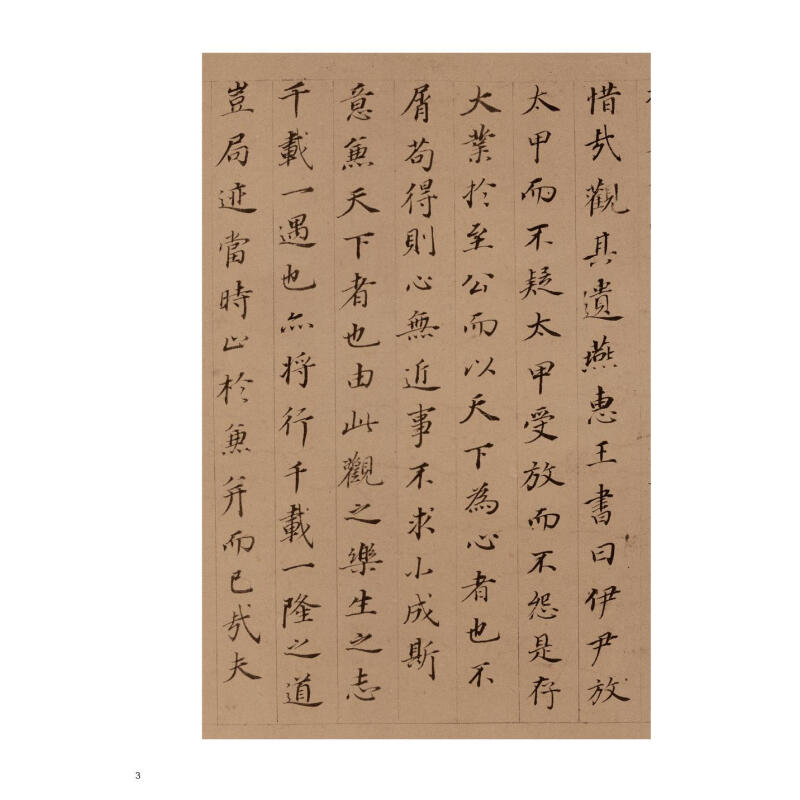 惜哉觀其遺燕惠王書曰伊尹放
太甲而不疑太甲受放而不怨是存
大業於至公而以天下為心者也不
屑苟得則心無近事不求小成斯
意兼天下者也由此觀之樂生之志
千載一遇也亦将行千載一隆之道
豈局迹當時止於兼并而已哉夫
3